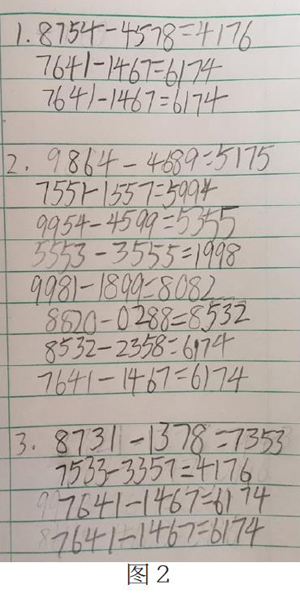 1. 8754-4578=4176
7641-1467=6174
7641-1467=6174
2. 9864-4689=5175
7551-1557=5994
9954-4599=5355
5553-3555=1998
9981-1899=8082
8820-0288=8532
8532-2358=6174
7641-1467=6174
3. 8731-1378=7353
7533-3357=4176
7641-1467=6174
7641-1467=6174
图2